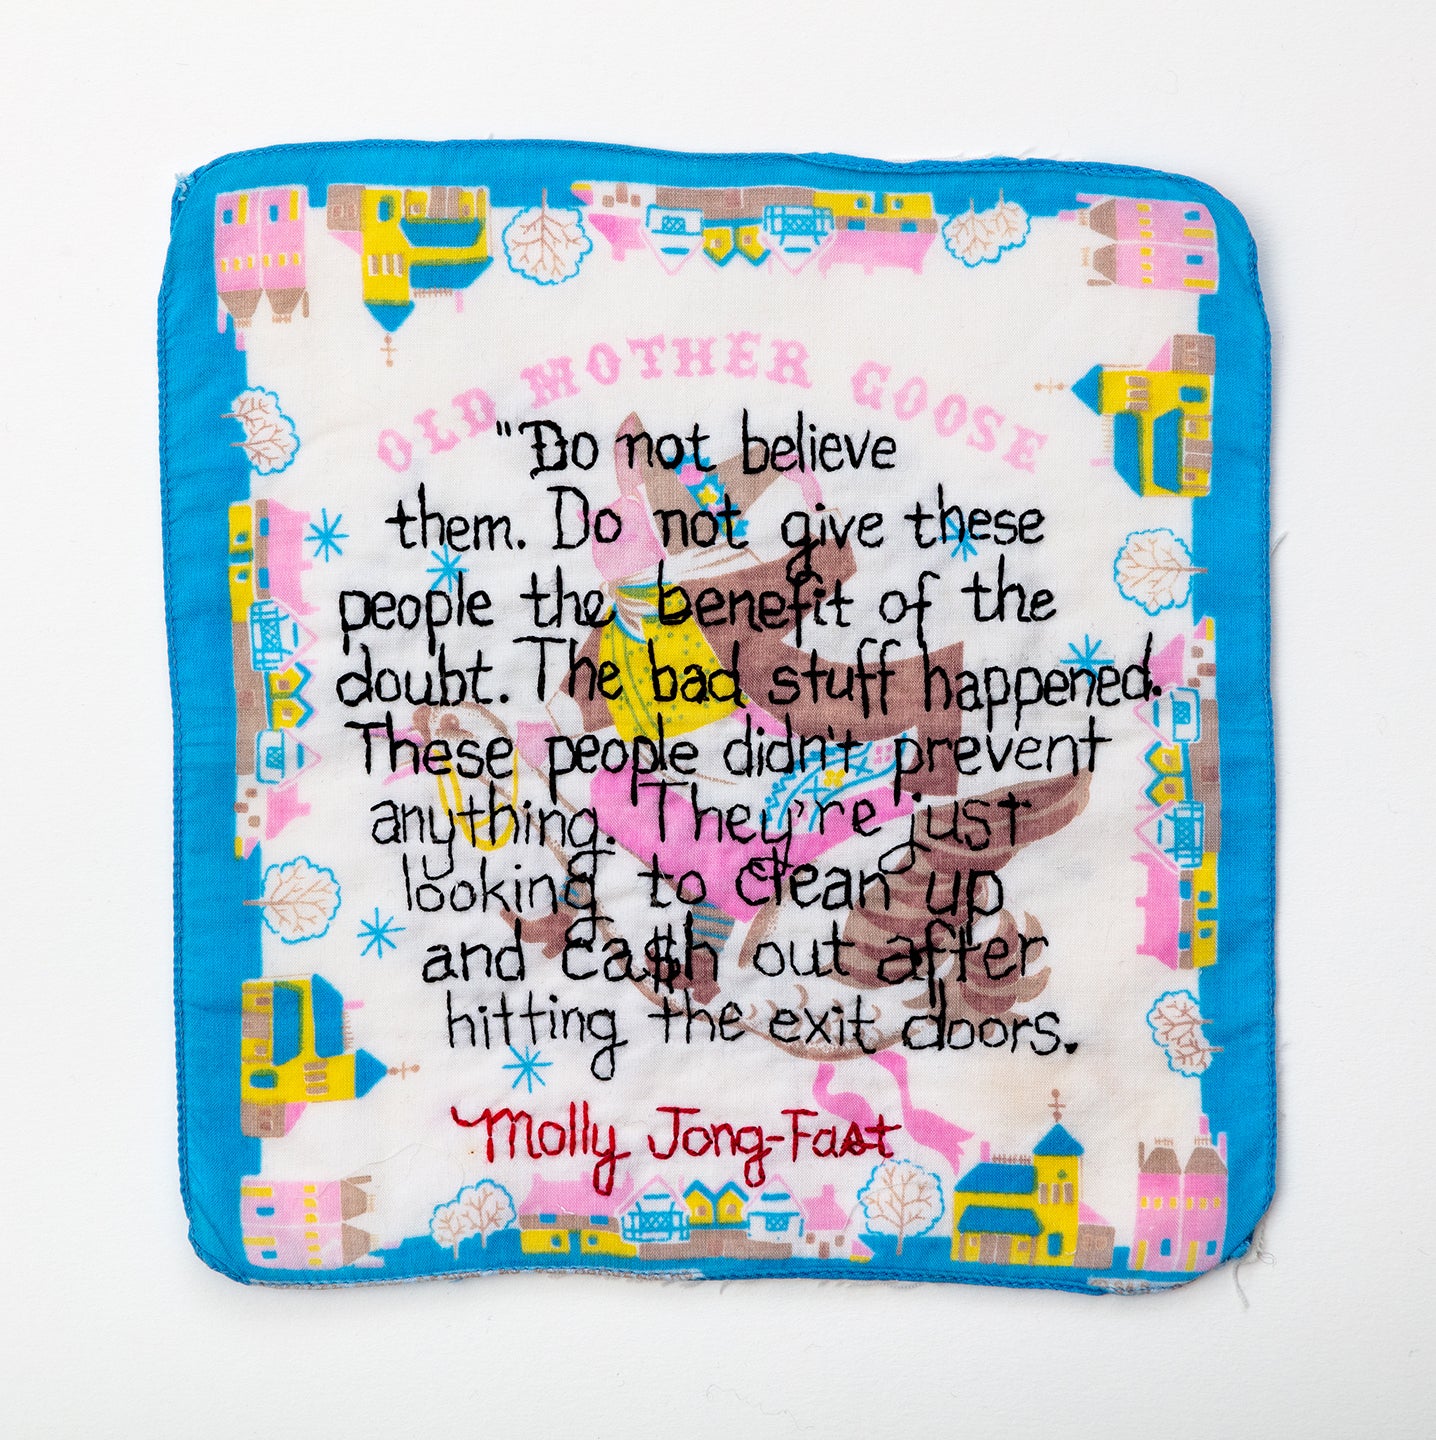 OLD MOTHER GOOSE
"Do not believe
them. Do not give these
people the benefit of the
doubt. The bad stuff happened.
These people didn't prevent
anything. They're just
looking to clean up
and ca$h out after
hitting the exit doors.
Molly Jong-Fast